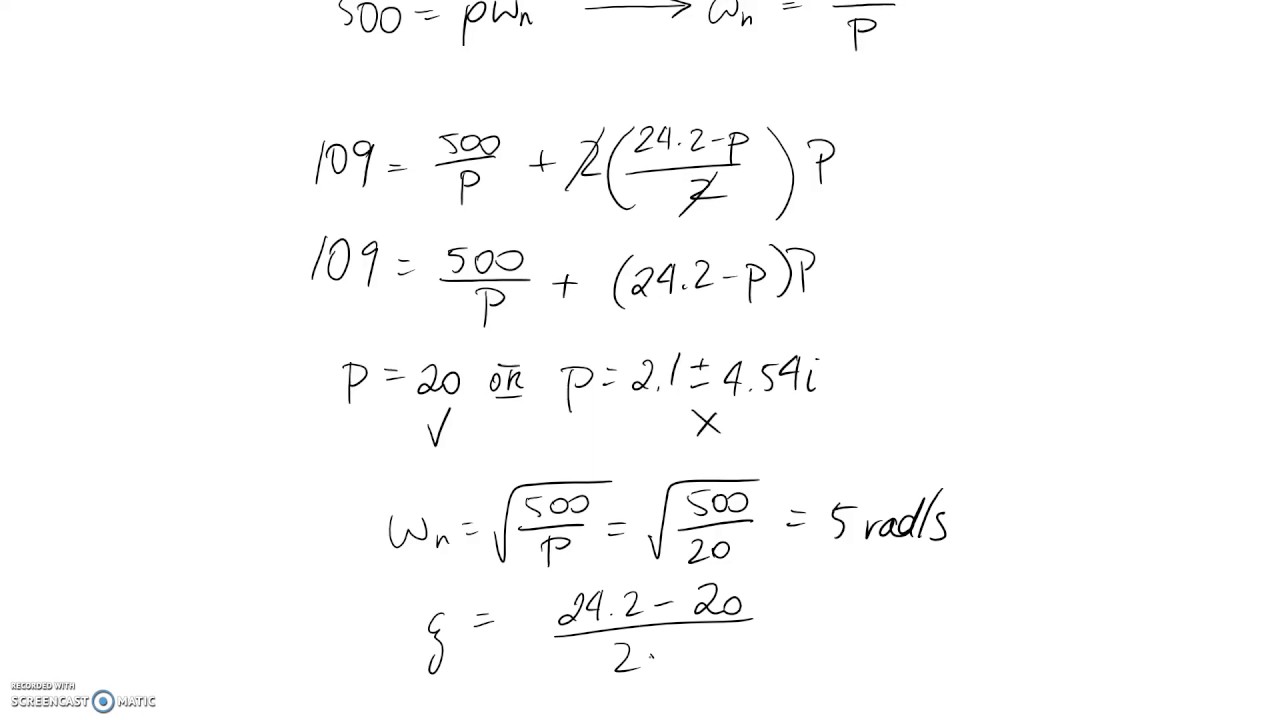 500 = pωn ⟶ ωn = / P
109 = 500/P + 2((24.2-p)/2)P
109 = 500/P + (24.2-p)P
P = 20 OR P = 2.1 ± 4.54i
√ X
ωn = √(500/P) = √(500/20) = 5 rad/s
ξ = (24.2 - 20)/2.
RECORDED WITH
SCREENCAST MATIC